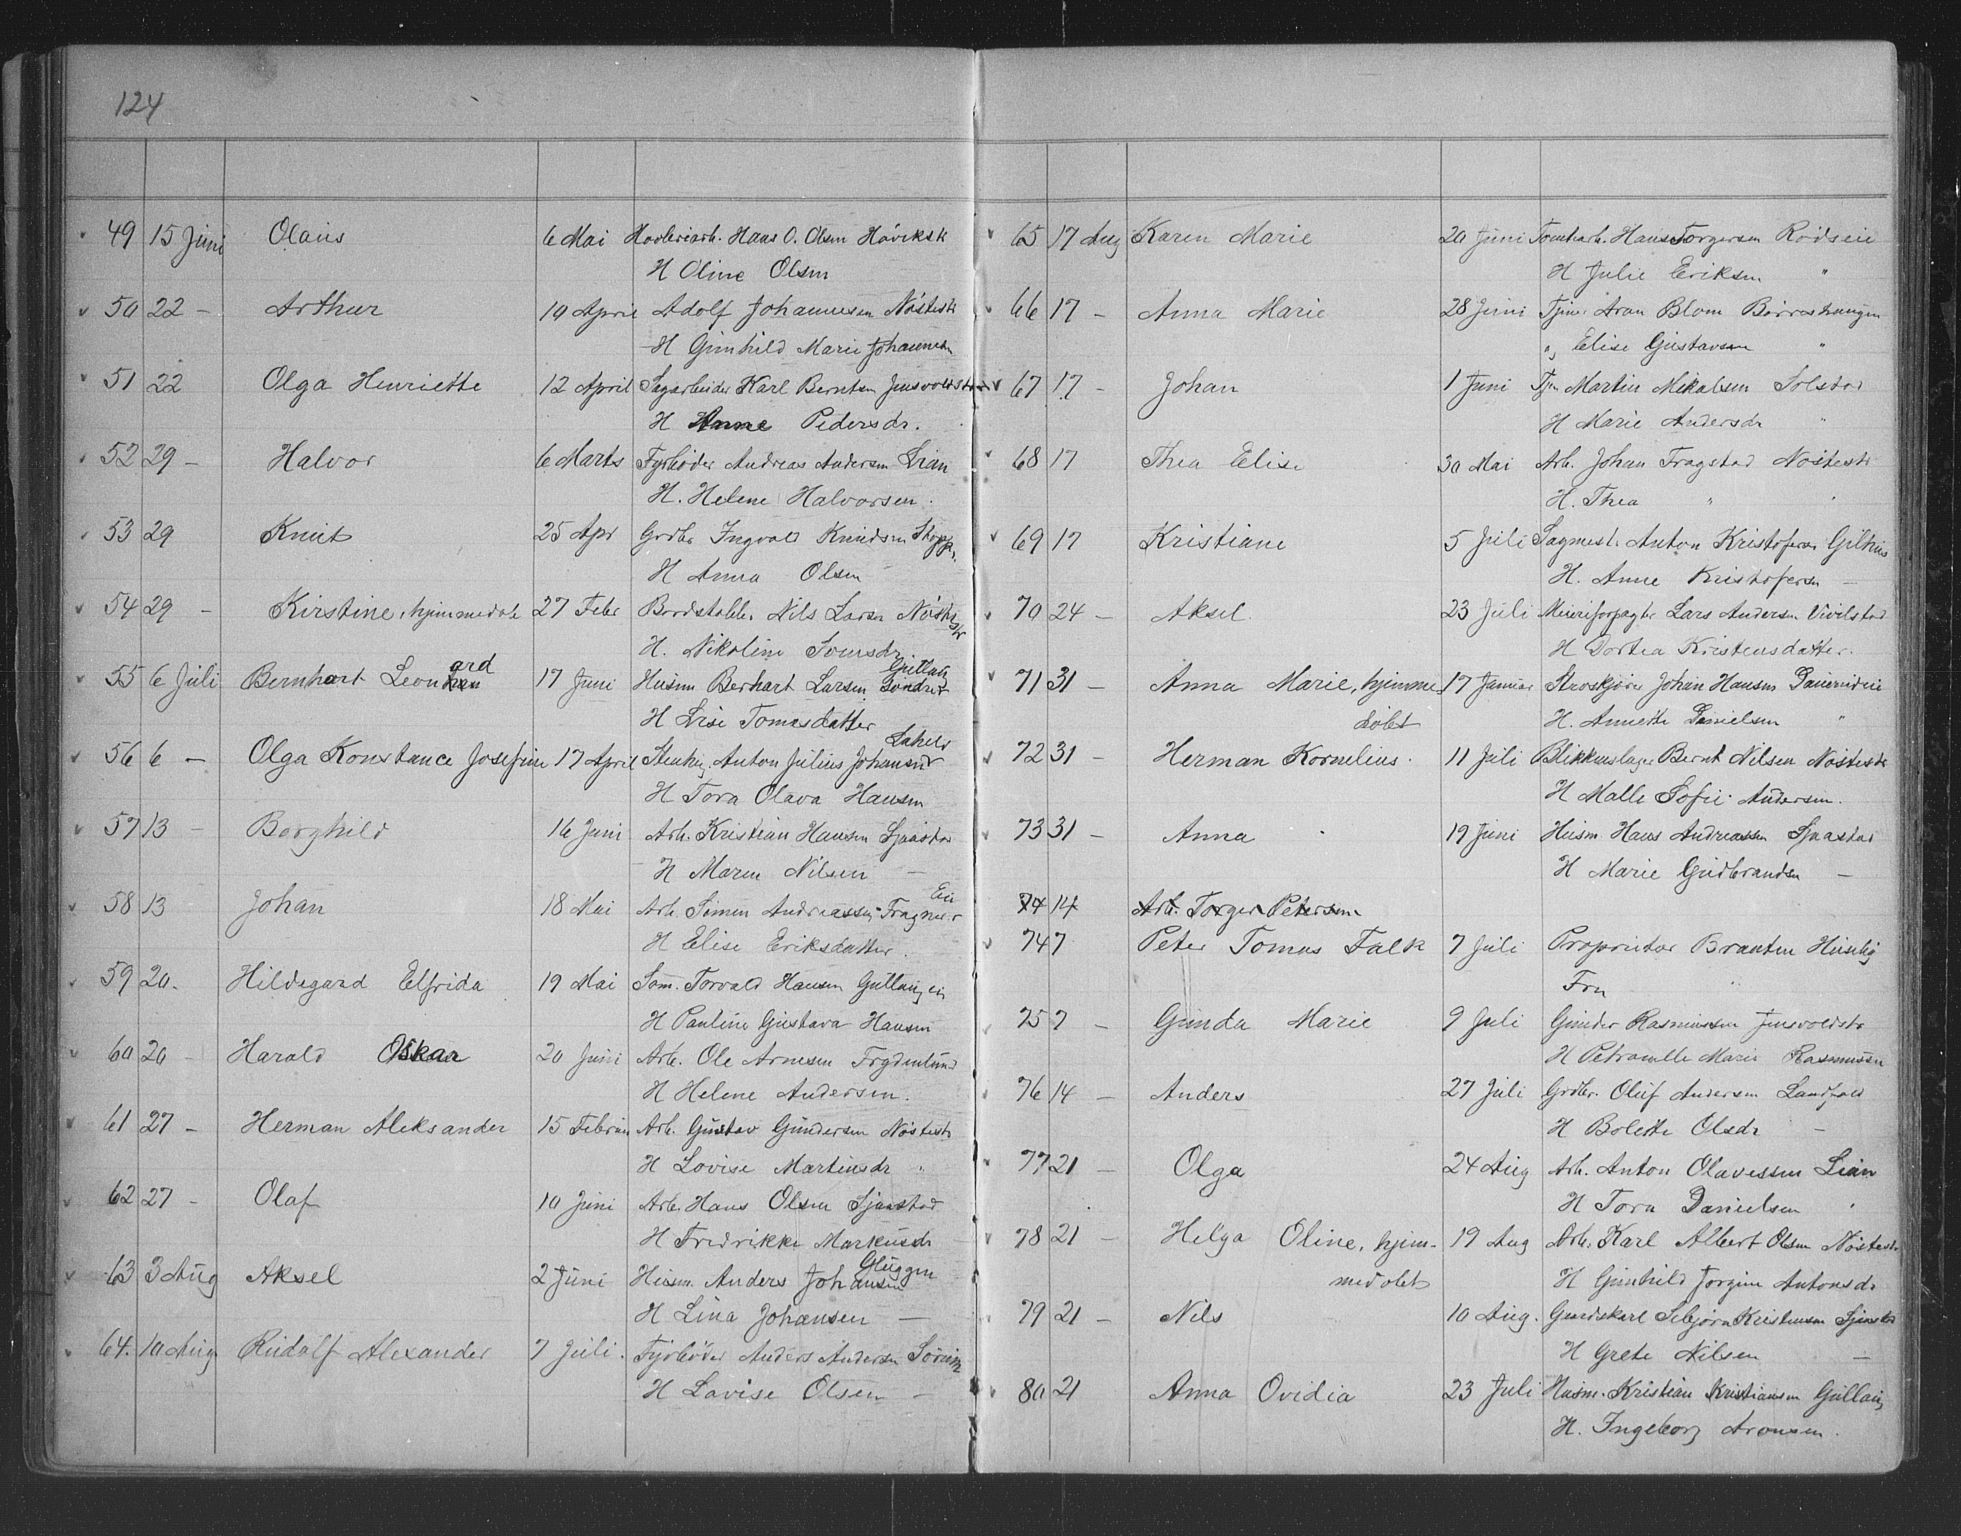 124
49 15 Juni Olaus 6 Mai Høvleriarb. Hans O. Olsen Høviksk
H Oline Olsen
50 22 - Arthur 10 April Adolf Johannesen Nøstestr
H Gunhild Marie Johannesen
51 22 Olga Henriette 12 April Sagarbeider Karl Berntsen Junsvoldstr
H Anne Pedersdr.
52 29 - Halvor 6 Marts Fyrbøder Andreas Andersen Lian
H. Helene Halvorsen.
53 29 Knut 25 Apr Grdbr Ingvald Knudsen Stopp.
H Anna Olsen
54 29 - Kirstine, hjemmedøbt 27 Febr Bordstabler Nils Larsen Nøstestr
H. Nikoline Iversdr.
55 6 Juli Bernhart Leonhard 17 Juni Husm Berhart Larsen Gullaug
H Lise Tomasdatter
56 6 - Olga Konstance Josefine 17 April Stenhug. Anton Julius Johansen Lahell
H Tora Olava Hansen
57 13 - Borghild 16 Juni Arb. Kristian Hansen Sjaastad
H Maren Nilsen -
58 13 Johan 18 Mai Arb. Simen Andreassen Fragner Eie
H Elise Eriksdatter.
59 20. Hildegard Elfrida 19 Mai Søm. Torvald Hansen Gullaug ei
H Pauline Gustava Hansen
60 20 - Harald Oskar 20 Juni Arb. Ole Arnesen Frydenlund
H Helene Andersen.
61 27 - Herman Aleksander 15 Februar Arb. Gustav Gundersen Nøstestr
H Lovise Martinsdr "
62 27 - Olaf 10 Juni Arb. Hans Olsen Sjaastad
H Fredrikke Markusdr -
63 3 Aug Aksel 2 Juni Husm. Anders Johansen Gluggen
H Lina Johansen -
64. 10 Aug Rudolf Alexander 7 Juli. Fyrbøder Anders Andersen
H Lovise Olsen -
65 17 Aug Karen Marie 20 Juni Tomtearb. Hans Torgersen Rødseie
H Julie Eriksen "
66 17 - Anna Marie 28 Juni Tjener Aron Blom Børreshaugen
" Elise Gustavsen "
67 17 - Johan 1 Juni Tjen Martin Mikalsen Solstad
H Marie Andersdr "
68 17 Thea Elise 30 Mai Arb. Johan Fragstad Nøstestr
H. Thea " "
69 17 Kristiane 5 Juli Sagmest. Anton Kristofersen Gilhus
H. Anne Kristofersen -
70 24 - Aksel 23 Juli Meieriforpagter Lars Andersen Vivelstad
H Dortea Kristensdatter.
71 31 - Anna Marie, hjemme- 17 Januar Johan Hansen
døbt H. Annette Danielsen "
72 31 - Herman Kornelius. 11 Juli Blikkenslager Bernt Nilsen Nøstestr
H Malle Sofie Andersen.
73 31 - Anna 19 Juni Husm Hans Andreassen Sjaastad
H Marie Gudbrandsen -
74 14 Arb. Torger Petersen
74 7 Peter Tomas Falk 7 Juli Proprietær Braaten Huseby
Fru "
75 7 - Gunda Marie 9 Juli Gunder Rasmussen Junsvoldstr
H Petronelle Marie Rasmussen
76 14 - Anders 27 Juli Grdbr. Oluf Andersen Landfald
H Bolette Olsdr -
77 21 - Olga 24 Aug Arb. Anton Olavessen Lian
H Tora Danielsen "
78 21 - Helga Oline, hjem- 19 Aug Arb. Karl Albert Olsen Nøstestr
medøbt H Gunhild Jorgine Antonsdr
79 21 - Nils 10 Aug. Gaardskarl Sebjørn Kristensen Sjaastad
H Grete Nilsen -
80 21 Anna Ovidia 23 Juli Husm. Kristian Kristiansen Gullaug
H. Ingeborg Aronsen.